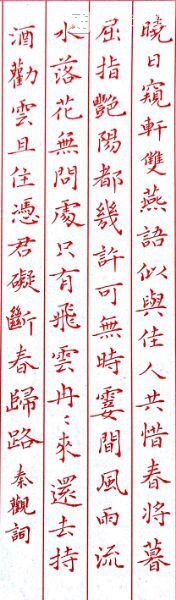 曉日窺軒雙燕語似與佳人共惜春將暮
屈指艷陽都幾許可無時霎間風雨流
水落花無問處只有飛雲冉〻來還去持
酒勸雲且住憑君礙斷春歸路 秦觀詞